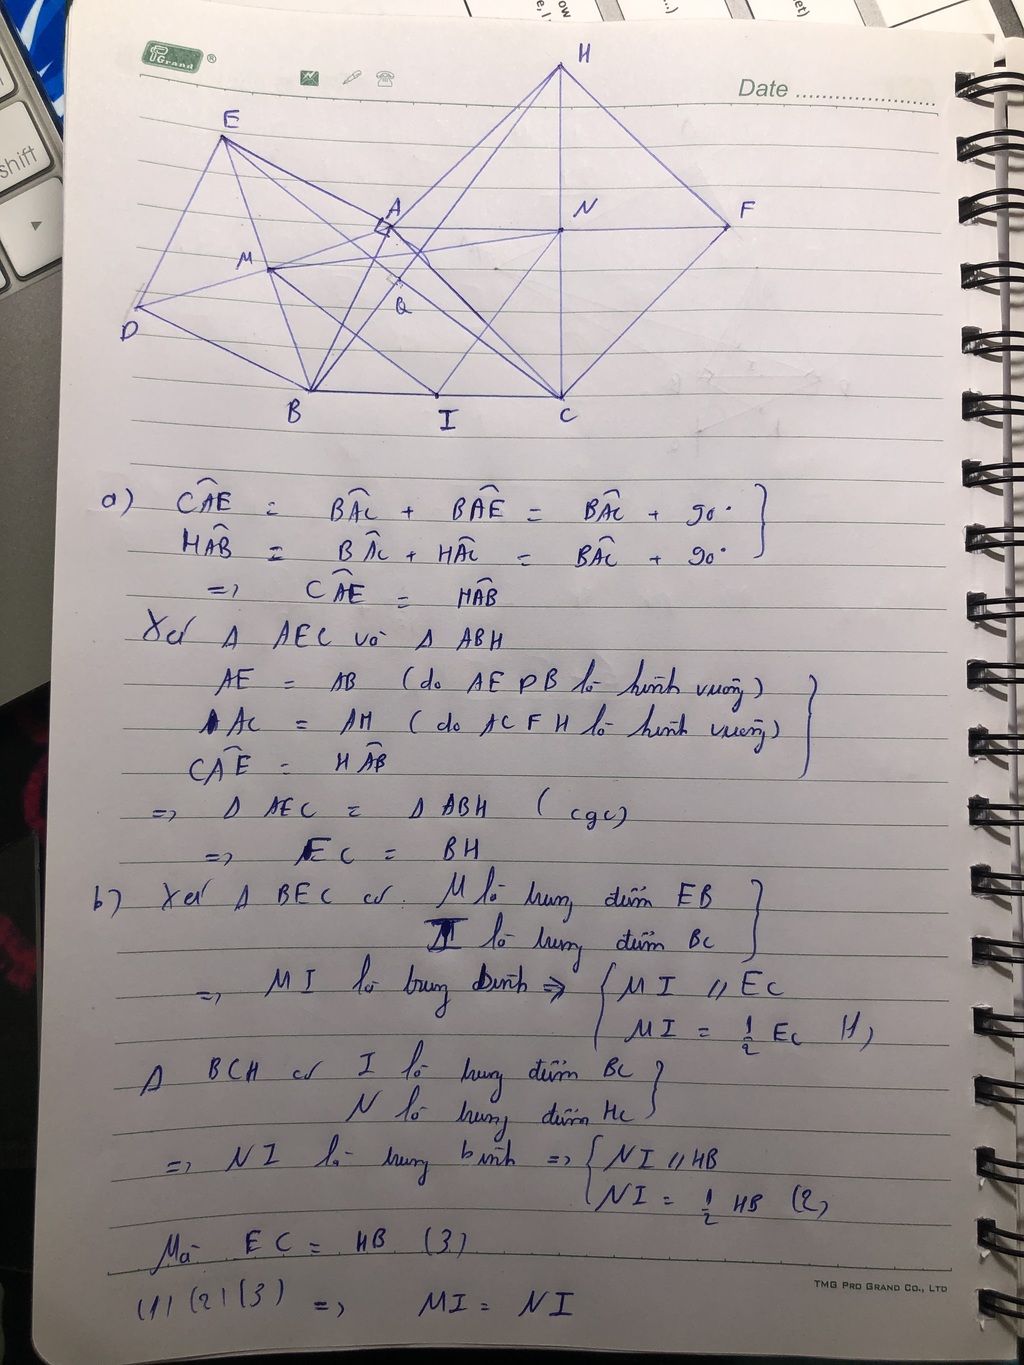 ow
e, I
...)
et)
shift
PGrand ®
Date
H
E
A
N
F
M
Q
D
B
I
C
a) CAE = BAC + BAE = BAC + 90°
HAB = BAC + HAC = BAC + 90°
=> CAE = HAB
Xét Δ AEC và Δ ABH
AE = AB (do AEDB là hình vuông)
AC = AH (do ACFH là hình vuông)
CAE = HAB
=> Δ AEC = Δ ABH (cgc)
=> EC = BH
b) Xét Δ BEC có M là trung điểm EB
I là trung điểm BC
=> MI là trung bình => { MI // EC
MI = 1/2 EC (1)
Δ BCH có I là trung điểm BC
N là trung điểm HC
=> NI là trung bình => { NI // HB
NI = 1/2 HB (2)
Mà EC = HB (3)
(1) (2) (3) => MI = NI
TMG PRO GRAND CO., LTD